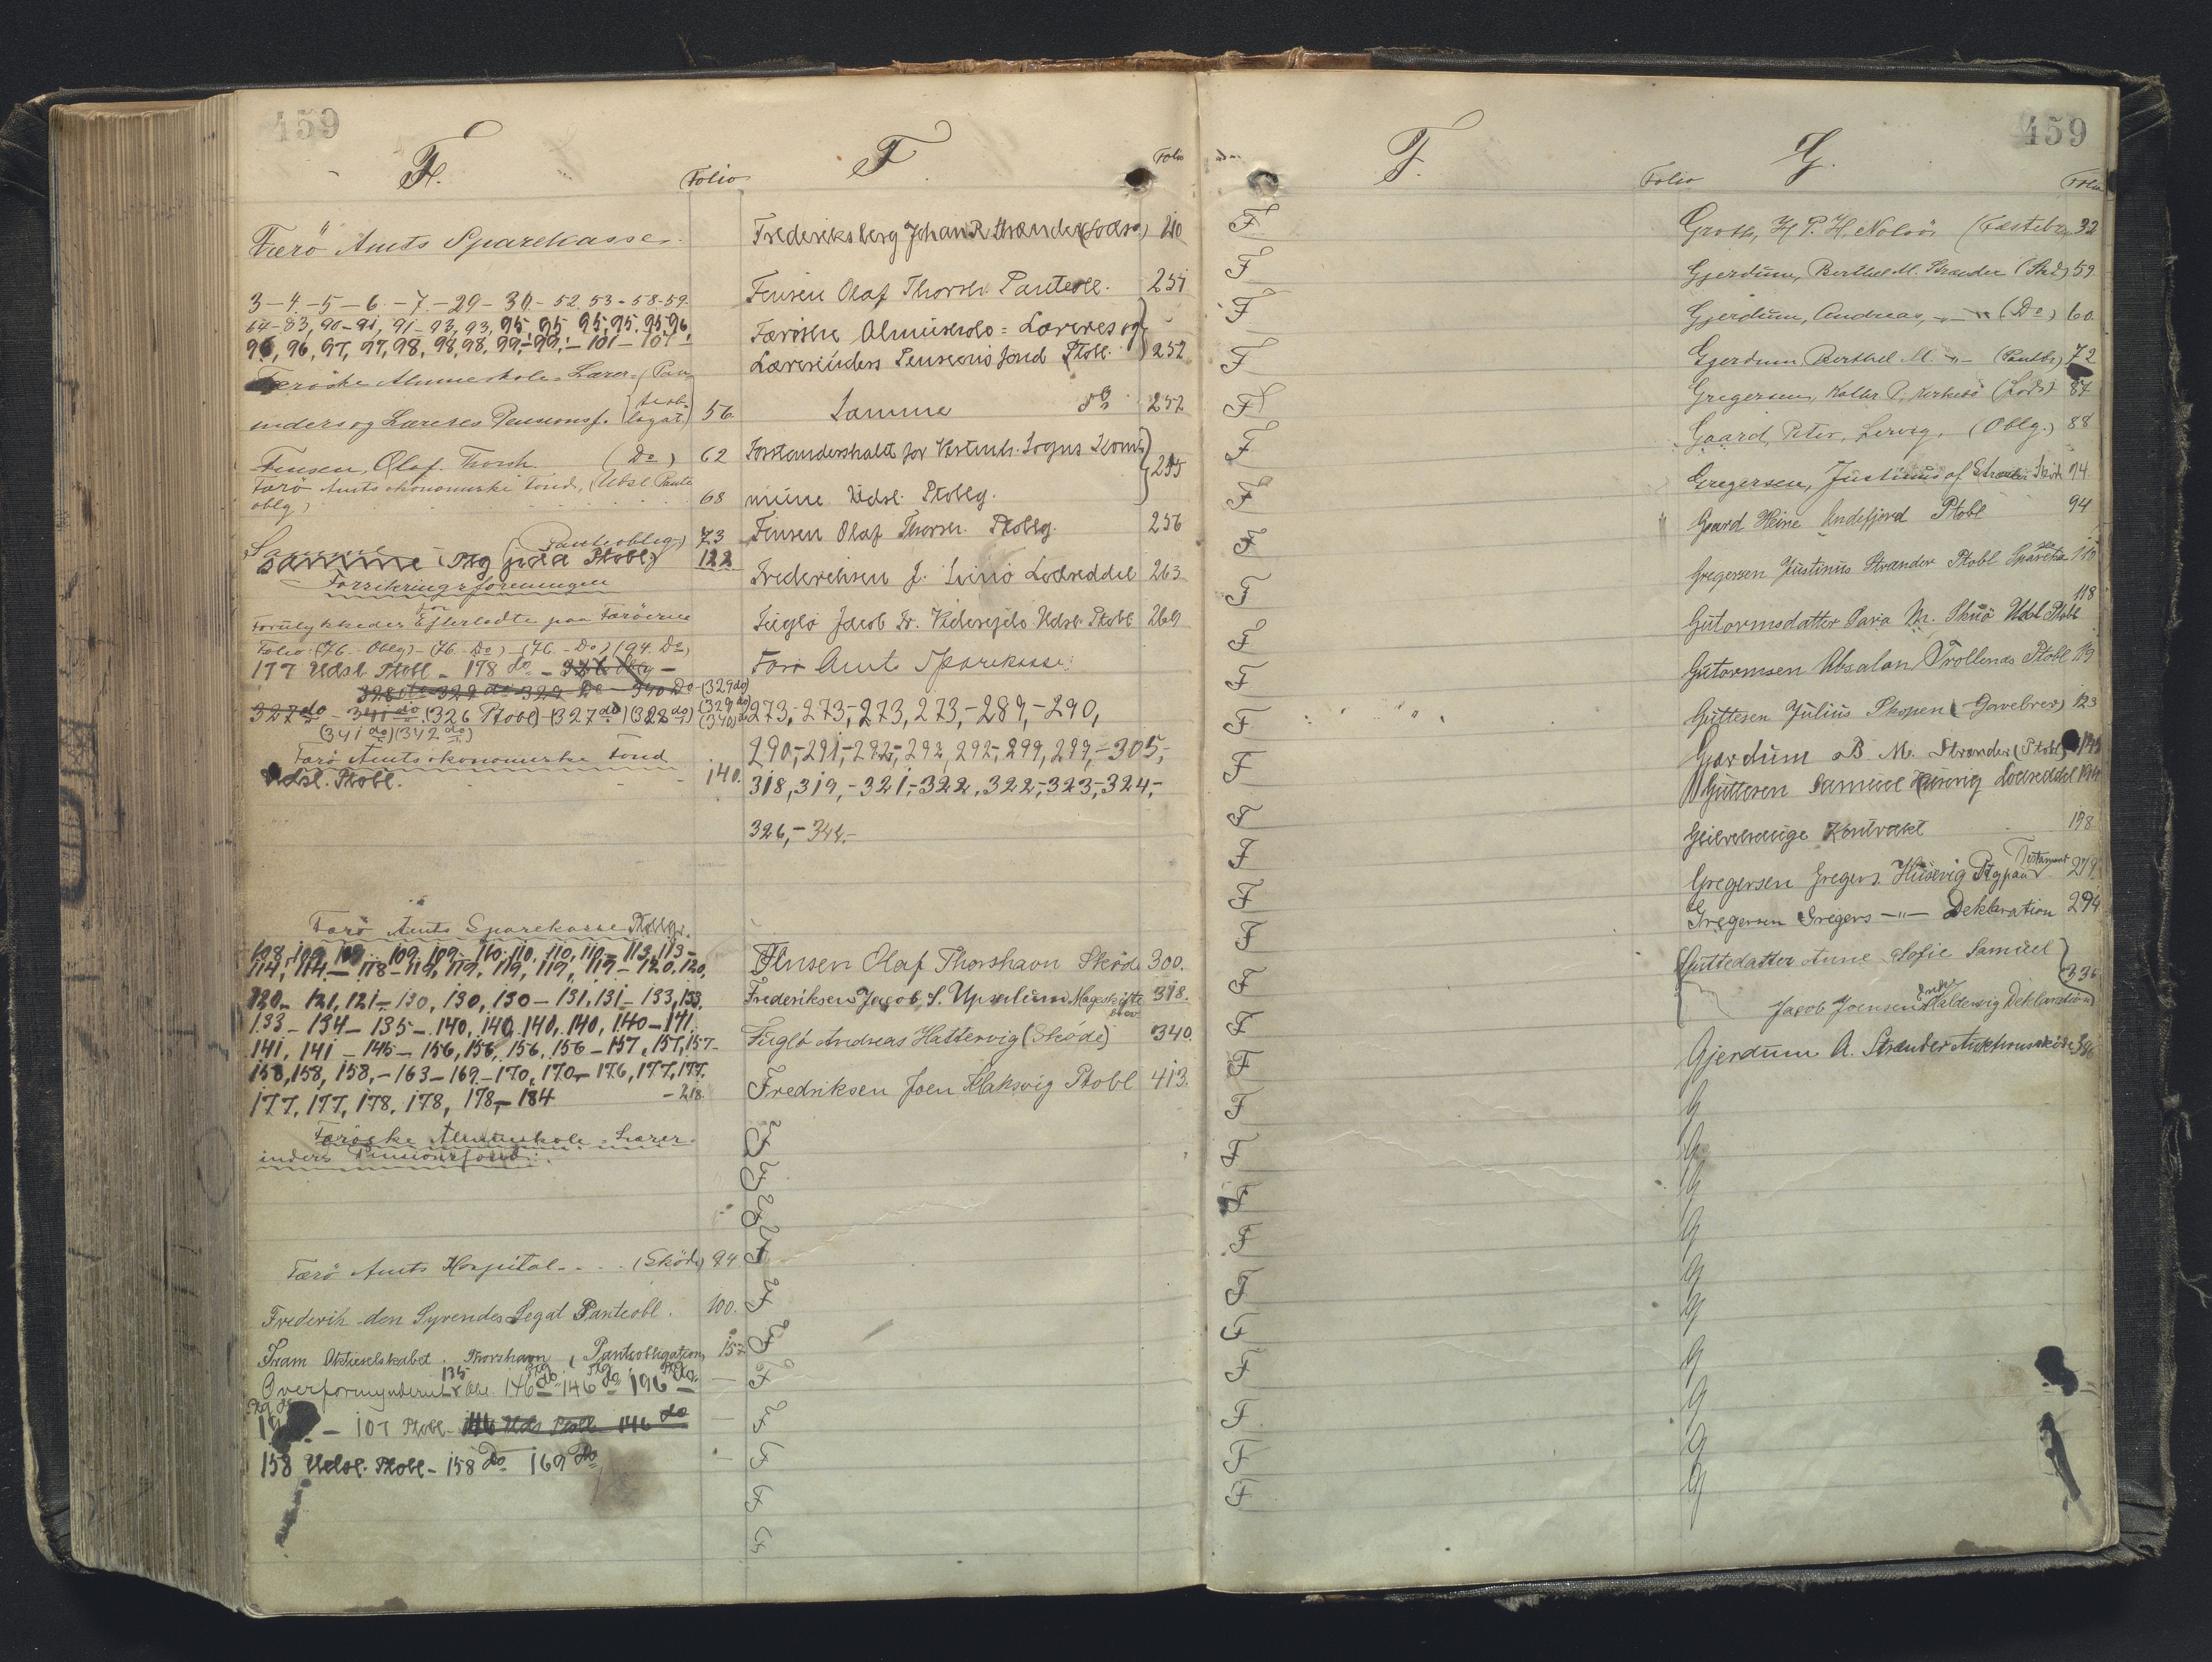 459
F.
Folio
Færö Amts Sparekasse.
3-4-5-6-7-29-30-52.53-58-59.
64-83, 90-91, 91-93, 93, 95, 95, 95, 95, 95, 96,
96, 96, 97, 97, 98, 98, 98, 99,-99,-101-107.
Færöske Almueskole-Lærer- (Pan-
inders og Læreres Pensionsf. teob-ligat) 56
Finsen, Olaf. Thorsh. (Do) 62
Færö Amts ökonomiske Fond, (Udsl. Pante
oblg) 68
(Panteoblig) 73
Samme 122
Forsikringsforeningen
for
Forulykkedes Efterladte paa Færöerne
Folio: (76. Oblg)-(76-Do)-(76.-Do) (94 Do)
177 Udsl. Ptobl - 178 do -
(329 do)
(326 Ptobl) (327 do) (328 do) (329 do)
(341 do) (342 do) (340 do)
Færö Amts ökonomiske Fond
Udsl. Ptobl. 140.
Færö Amts Sparekasse Ptoblg.
108, 109, 109, 109, 109, 110, 110, 110, 110, 110-113, 113-
114, 114-118-119, 119, 119, 119, 119-120, 120,
120-121, 121-130, 130, 130-131, 131-133, 133,
133-134-135-140, 140, 140, 140, 140-141.
141, 141-145-156, 156, 156, 156-157, 157, 157-
158, 158, 158,-163-169-170, 170-176, 177, 177.
177, 177, 178, 178, 178-184 -218.
Færöske Almueskole-Lærer-
inders Pensionsfond:
Færö Amts Hospital. . . . (Sköde) 94
Frederik den Syvendes Legat Panteobl. 100.
Fram Aktieselskabet. Thorshavn (Panteobligation) 157
Overformynderiet 135 Obl. 146 do 146 do 196 do
107 Ptobl- 146 Uds Ptobl 146 do
158 Udsl. Ptobl-158 do 169 do
F.
Folio
Frederiksberg Johan R Strænder (Lods) 210
Finsen Olaf Thorsh. Panteobl. 251
Færöske Almueskole=Læreres og
Lærerinders Pensions fond Ptobl. 252
Samme do 252
Forstanderskabet for Vestmh. Sogns Kom-
mune Udsl. Ptoblg. 255
Finsen Olaf Thorsh. Ptoblg. 256
Frederiksen J. Svinö Lodseddel 263
Fuglö Jacob Fr. Viderejde Udsl. Ptobl 269
Færö Amts Sparekasse:
273,-273,-273, 273,-289,-290,
290,-291,-292,-292, 292,-299, 299,-305,-
318, 319,-321,-322, 322,-323,-324,-
326,-344.-
Finsen Olaf Thorshavn Sköde 300.
Frederiksen Jacob S. Upsalum Mageskifte
brev 318.
Fuglö Andreas Hattervig (Sköde) 340.
Fredriksen Joen Klaksvig Ptobl 413.
F
F
F
F
F
F
F
F
F
F
F
459
F.
Folio
F
F
F
F
F
F
F
F
F
F
F
F
F
F
F
F
F
F
F
F
F
F
F
F
F
F
F
F
F
F
F
G.
Folio
Groth, H. P. H. Nolsö (Fæstebr) 32
Gjerdum, Berthel M. Strænder (Skd) 59
Gjerdum, Andreas, -"- (Do) 60
Gjerdum Berthel M. -"- (Pantbr) 72
Gregersen, Kathr. P., Kirkebö (Lods) 87
Gaard, Peter, Lervig, (Oblg.) 88
Gregersen, Justinus af Strænder Sköde 94
Gaard Heine Andefjord Ptobl 94
Gregersen Justinus Strænder Ptobl Spareka
sse 110
Gutormsdatter Sara M. Skuö Udsl Ptobl 118
Gutormsen Absalon Trollenæs Ptobl 119
Guttesen Julius Skopen (Gavebrev) 123
Gærdum B M. Strænder (Ptobl) 143
Guttesen Samuel Husevig Lodseddel 194
Kontrakt 198
Gregersen Gregers. Husevig Testament 279
Gregersen Gregers -"- Deklaration 294
Guttedatter Anne Sofie Samuel
Jacob Joensen Enke Haldersvig Deklaration 336
Gjerdum A. Strænder Auktionssköde 386
G
G
G
G
G
G
G
G
G
G